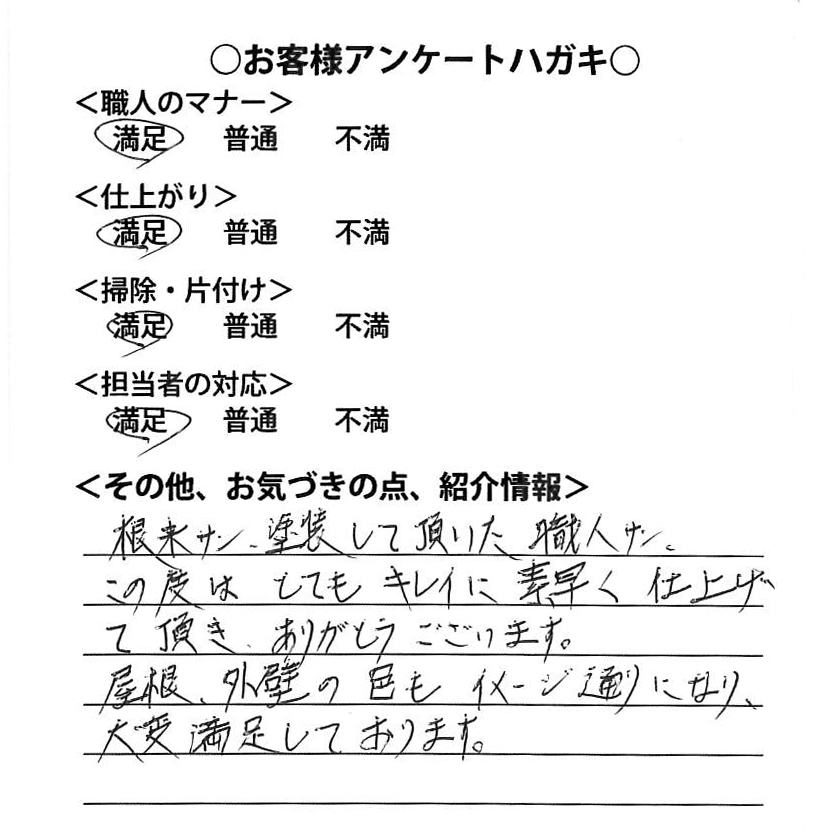 ○お客様アンケートハガキ○
＜職人のマナー＞
満足 普通 不満
＜仕上がり＞
満足 普通 不満
＜掃除・片付け＞
満足 普通 不満
＜担当者の対応＞
満足 普通 不満
＜その他、お気づきの点、紹介情報＞
根来サン、塗装して頂いた 職人サン、
この度は とても キレイに 素早く 仕上げ
て 頂き、ありがとうございます。
屋根、外壁の 色も イメージ通りになり、
大変 満足しております。